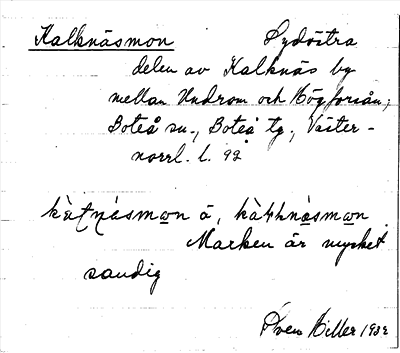 Kalknäsmon Sydöstra
delen av Kalknäs by
mellan Undrom och Högforsån;
Boteå sn., Boteå tg., Väster-
norrl. l. 92
Marken är mycket
sandig
Sven Biller 1932